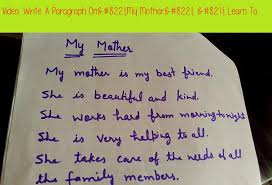 Video Write A Paragraph On&#8221;My Mother&#8221; &#8211; Learn To
My Mother
My mother is my best friend.
She is beautiful and kind.
She works hard from morning to night
She is very helping to all.
She takes care of the needs of all
the family members.